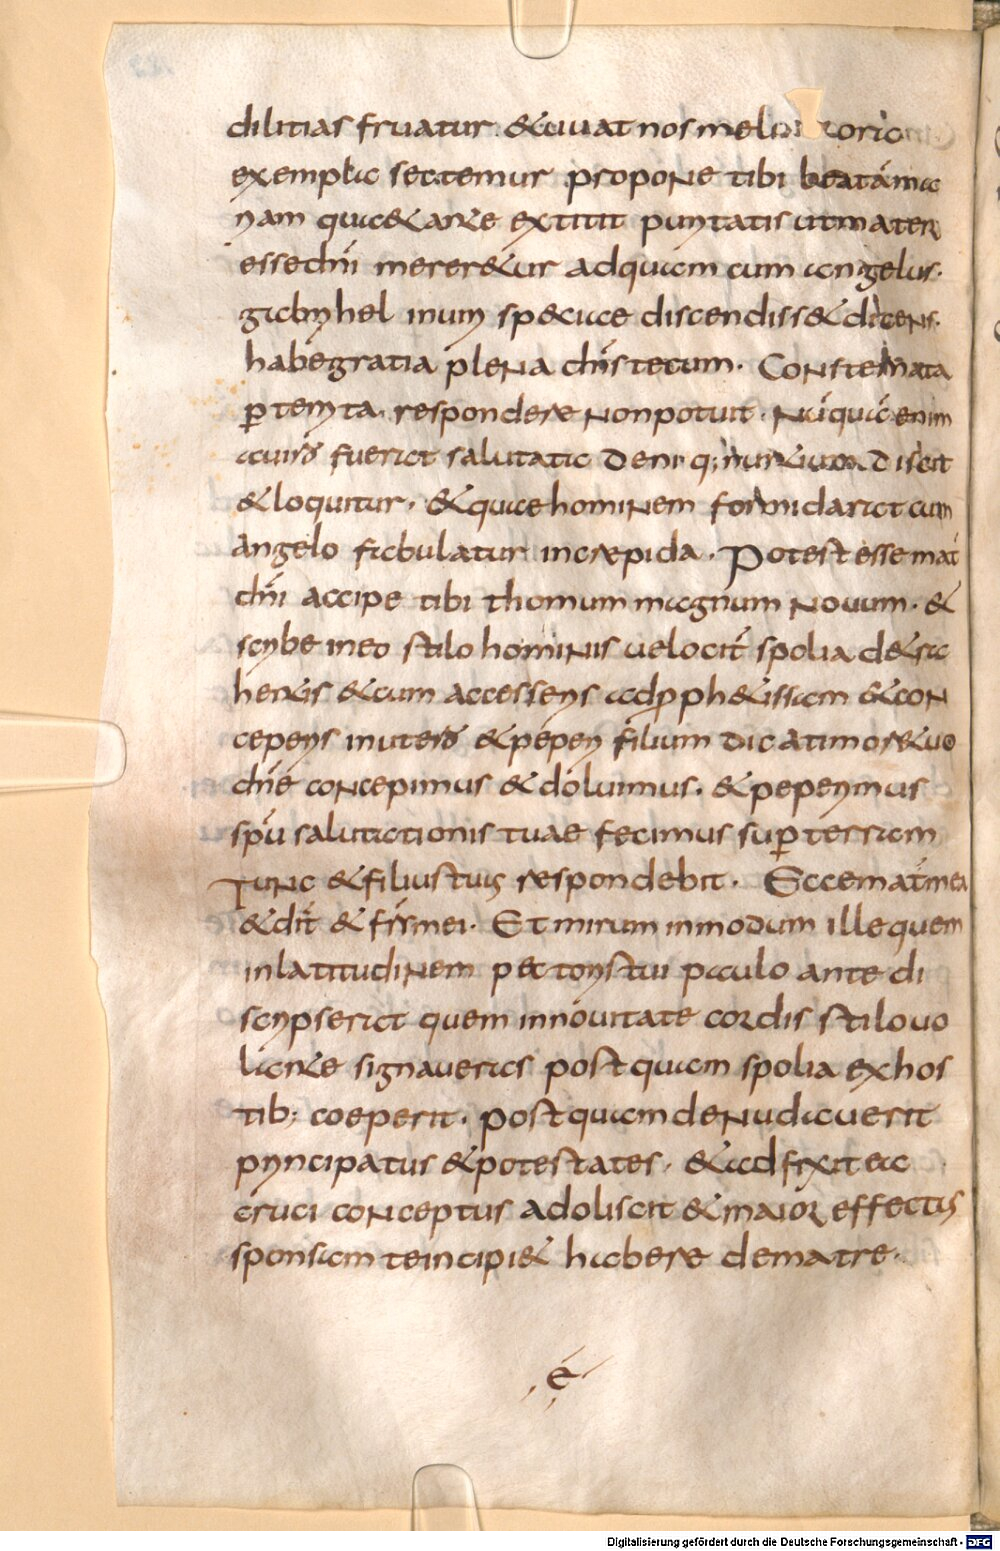 dilitias fruatur. &iuuat nos meliora
exempla sectemur propone tibi beatam ma
riam quae tantae extitit puritatis ut mater
esse dn̄i merer&ur ad quam cum angelus.
gabrihel in uiri specie discendiss& dicens.
habe gratia plena dn̄s tecum. Consternata
p̱ territa. respondere non potuit. Nūquā enim
a uiro fuerat salutata deniq; nuntium discit
& loquitur. & quae hominem formidarat cum
angelo fabulatur intrepida. Potest esse mat̄
dn̄i accipe tibi thomum magnum nouum. &
scribe in eo stilo hominis uelocit̄ spolia d&ra
hentis & cum accesseris ad proph&issam & con
ceperis in utero & pepereris filium dic a timore tuo
dn̄e concepimus & doluimus. & peperimus
sp̄u salutationis tuae fecimus sup̱ terram
Tunc & filius tuus respondebit. Ecce mat̄ mea
& dic̄ & fr̄s mei. Et mirum in modum ille quem
in latitudinem pectoris tui paulo ante di
scripserat quem in nouitate cordis stilo uo
lante signaueras postquam spolia ex hos
tib; coeperit. postquam denudauerit
principatus & potestates. & adfixit ea
cruci conceptus adoliscit & maior effectus
sponsam te incipi& habere de matre.